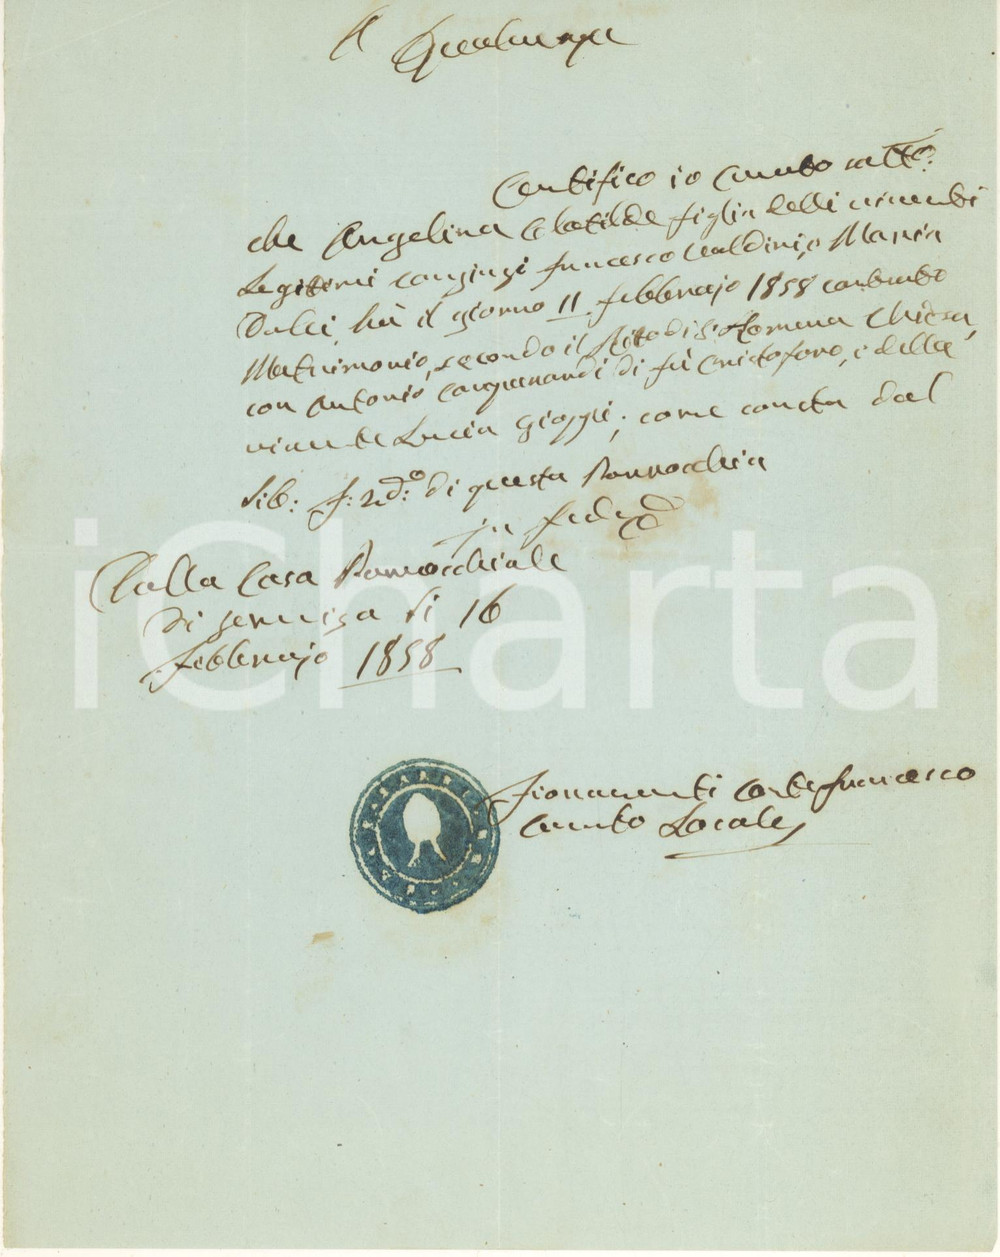 A Qualunque
Certifico io Curato sott.o
che Angelina Clotilde figlia delli viventi
Legitimi conjugi francesco Valdini, e Maria
Dulci, hà il giorno 11 febbrajo 1858 contratto
Matrimonio, secondo il Rito di S. Romana Chiesa,
con Antonio di fù Cristoforo, e della
vivente Lucia Gioppi; come consta dal
Lib: di questa Parrocchia
in fede
Dalla Casa Parrocchiale
di li 16
febbrajo 1858
francesco
Curato Locale
iCharta